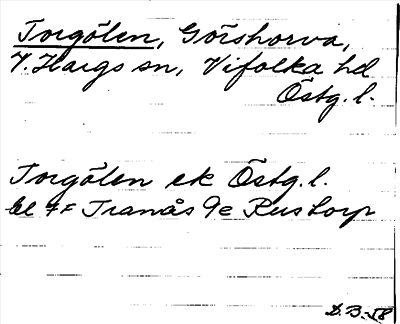 Torgölen, Görshorva,
V. Hargs sn, Vifolka hd
Östg. l.
Torgölen ek Östg. l.
bl FF Tranås 9e Rustorp
D.B-58